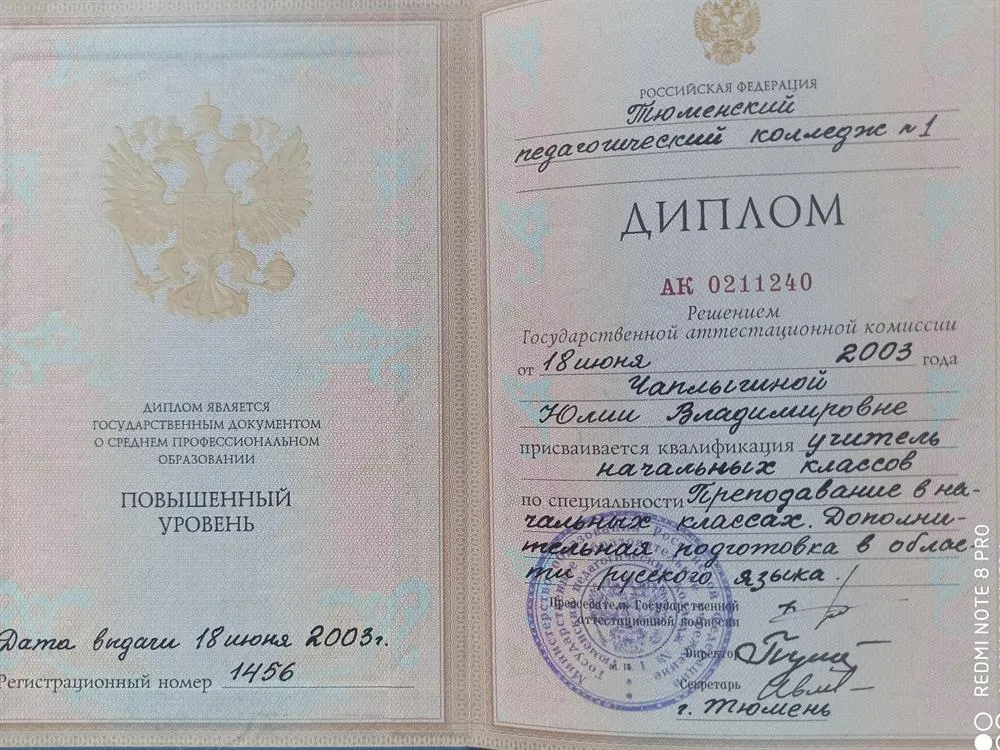 ДИПЛОМ ЯВЛЯЕТСЯ
ГОСУДАРСТВЕННЫМ ДОКУМЕНТОМ
О СРЕДНЕМ ПРОФЕССИОНАЛЬНОМ
ОБРАЗОВАНИИ
ПОВЫШЕННЫЙ
УРОВЕНЬ
Дата выдачи 18 июня 2003г.
Регистрационный номер 1456
РОССИЙСКАЯ ФЕДЕРАЦИЯ
Тюменский
педагогический колледж №1
ДИПЛОМ
АК 0211240
Решением
Государственной аттестационной комиссии
от 18 июня 2003 года
Чаплыгиной
Юлии Владимировне
присваивается квалификация учитель
начальных классов
по специальности Преподавание в на-
чальных классах. Дополни-
тельная подготовка в облас-
ти русского языка.
Председатель Государственной
аттестационной комиссии
Директор
Секретарь
г. Тюмень
REDMI NOTE 8 PRO